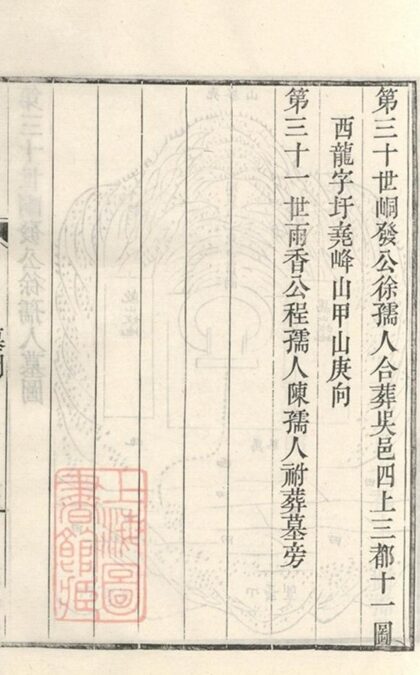 第三十世峒發公徐孺人合葬吳邑四上三都十一圖
西龍字圩堯峰山甲山庚向
第三十一世雨香公程孺人陳孺人祔葬墓旁
上海圖
書館藏